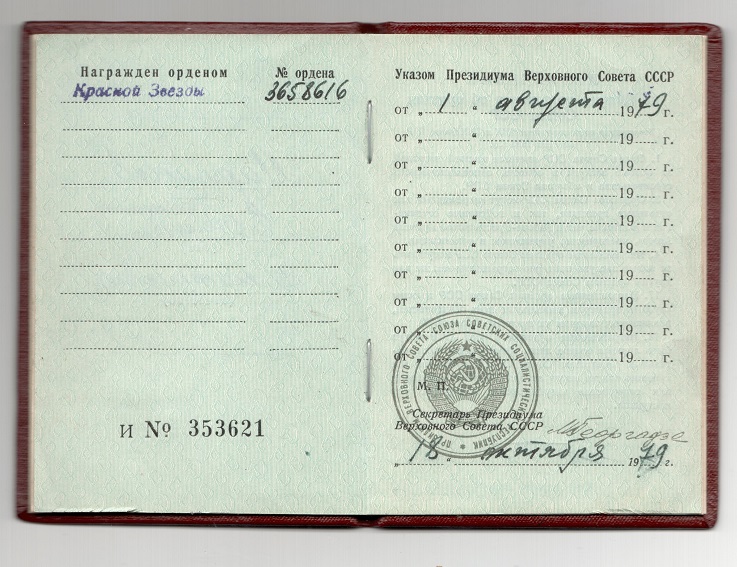 Награжден орденом
№ ордена
Красной Звезды
3658616
И № 353621
Указом Президиума Верховного Совета СССР
от „ 1 “ августа 1979 г.
от „ “ 19 г.
от „ “ 19 г.
от „ “ 19 г.
от „ “ 19 г.
от „ “ 19 г.
от „ “ 19 г.
от „ “ 19 г.
от „ “ 19 г.
от „ “ 19 г.
М. П.
Секретарь Президиума
Верховного Совета СССР
МГеоргадзе
„ 18 “ октября 1979 г.
ПРЕЗИДИУМ ВЕРХОВНОГО СОВЕТА СОЮЗА СОВЕТСКИХ СОЦИАЛИСТИЧЕСКИХ РЕСПУБЛИК